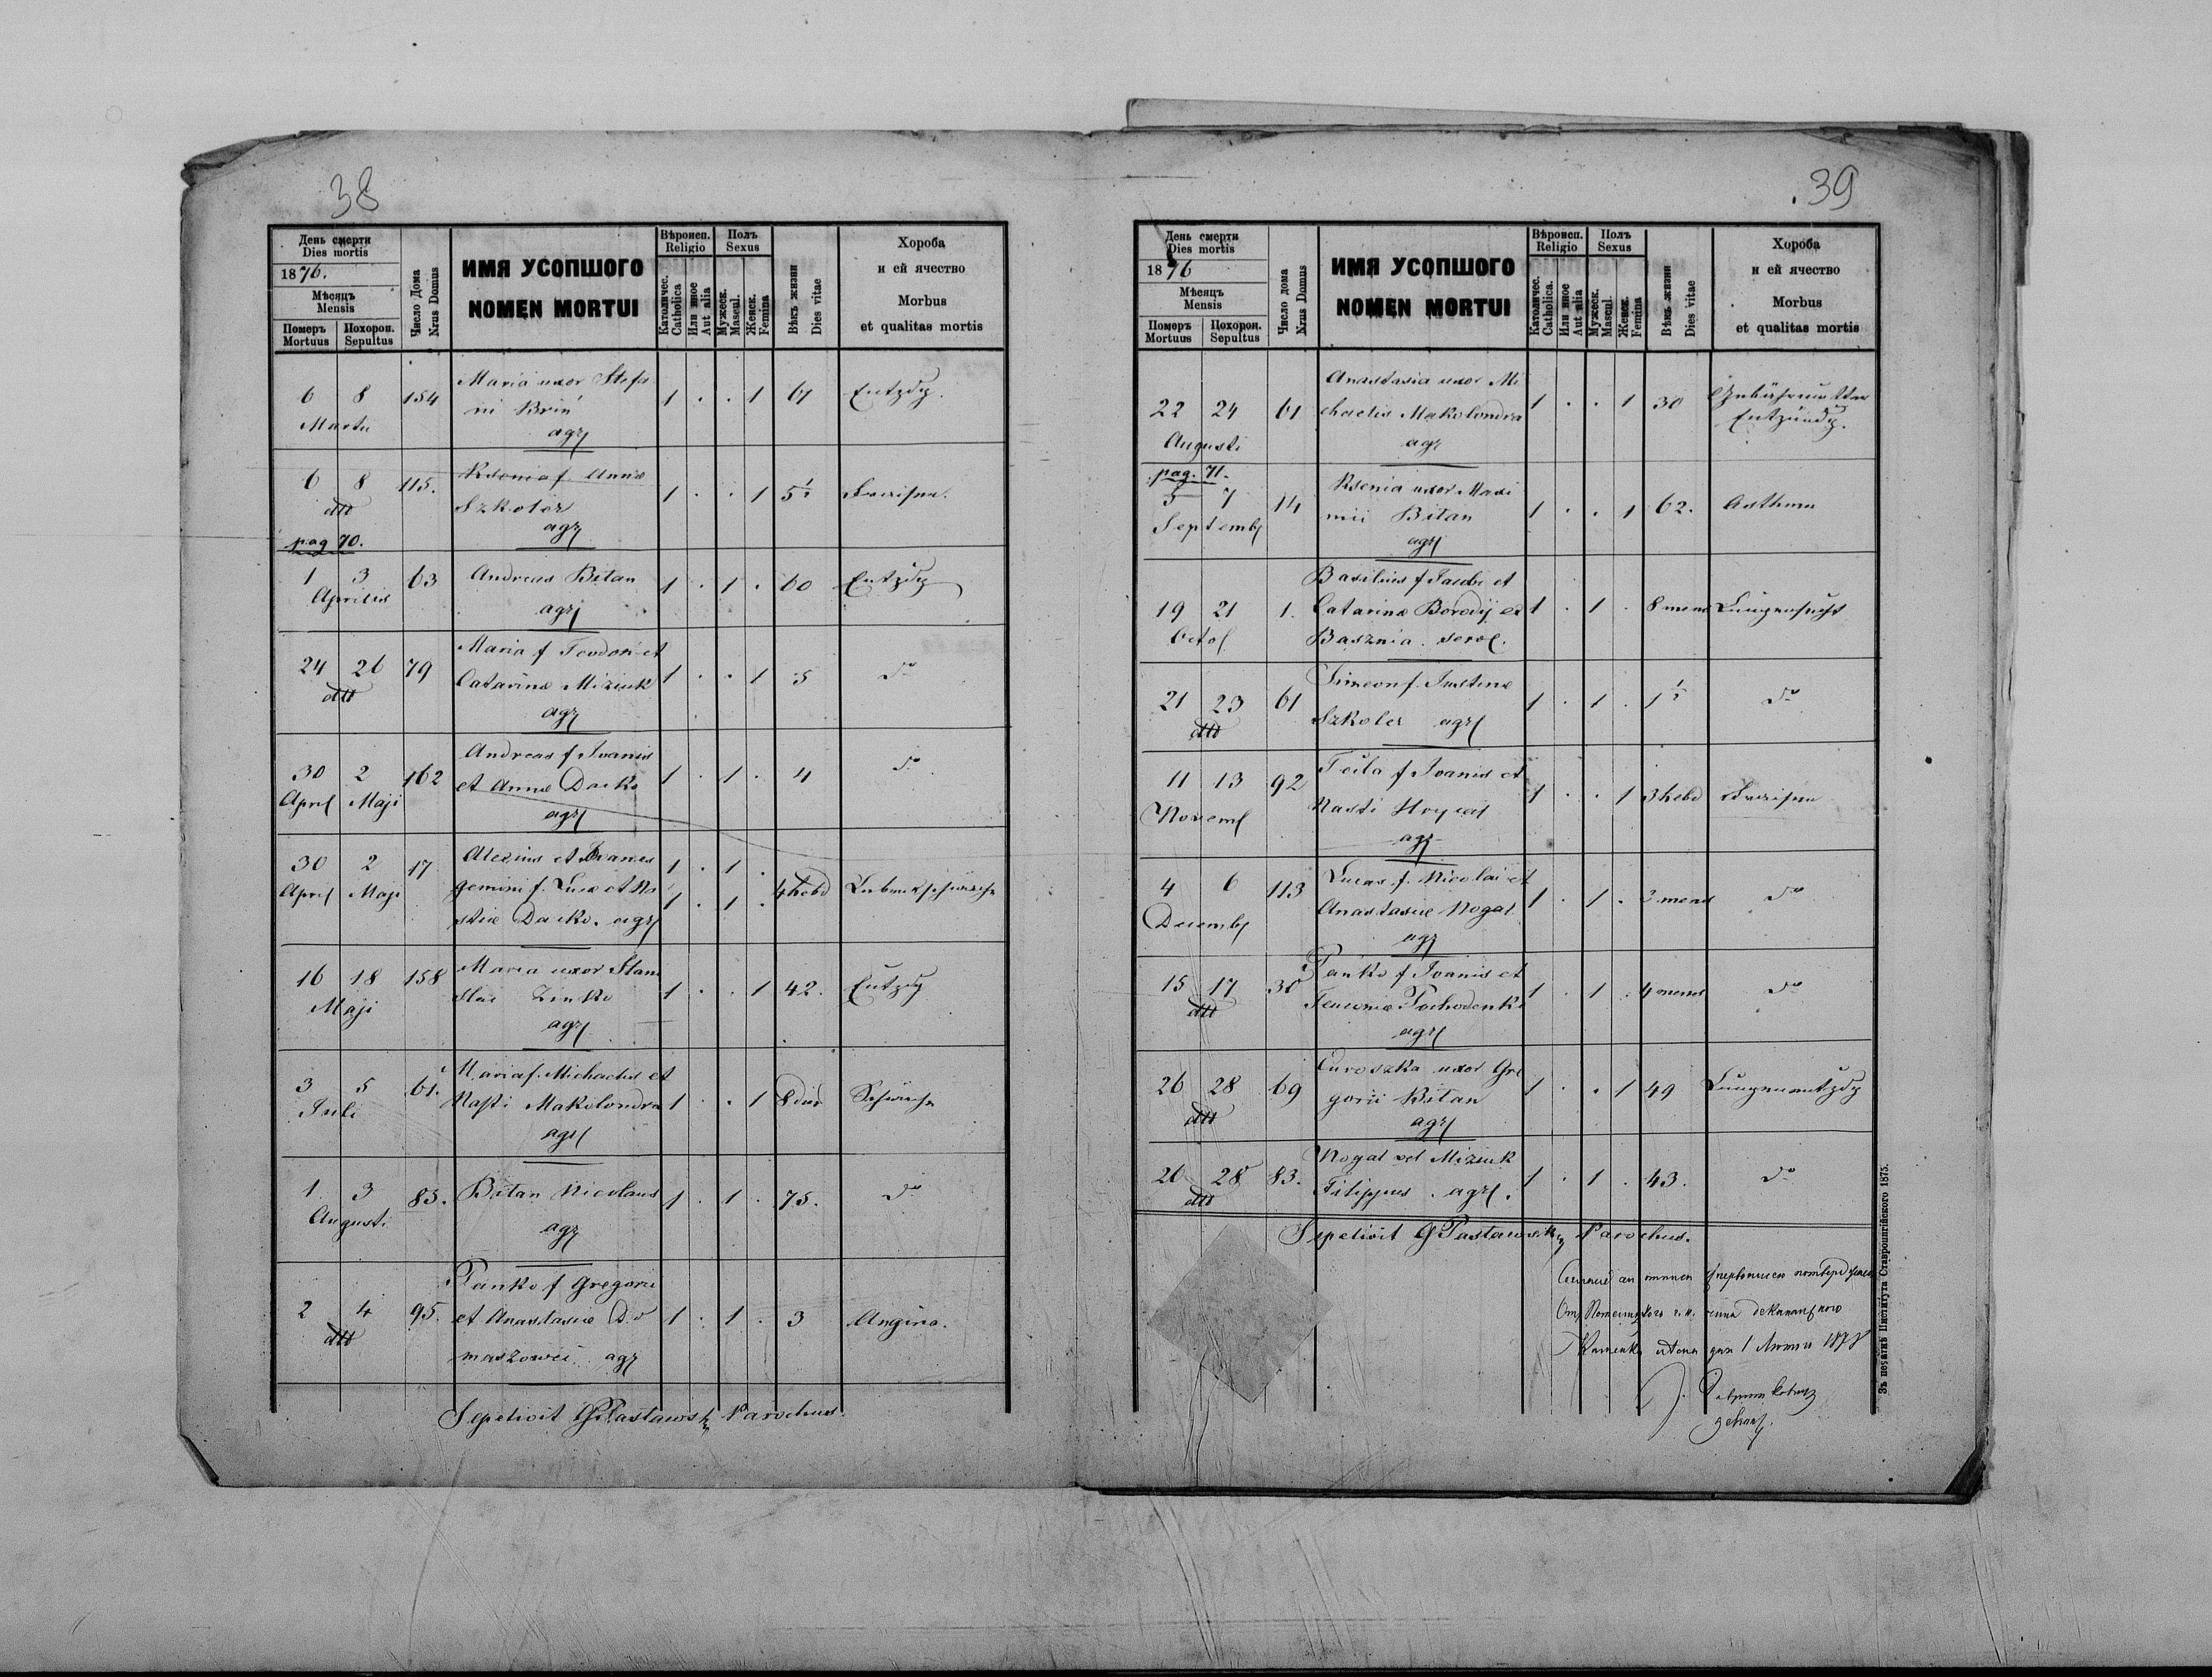 38
День смерти
Dies mortis
1876.
Мѣсяцъ
Mensis
Померъ Похорон.
Mortuus Sepultus
Число Дома
Nrus Domus
ИМЯ УСОПШОГО
NOMEN MORTUI
Вѣроисп.
Religio
Католичес.
Catholica
Или иное
Aut alia
Полъ
Sexus
Мужеск.
Mascul.
Женск.
Femina
Вѣкъ жизни
Dies vitae
Хороба
и ей ячество
Morbus
et qualitas mortis
Maria uxor Stefa
6 8 154 ni Brin 1 . . 1 67 Entzdg.
Martii agr
6 8 115. Ksenia f. Annae
dtt Szkoler 1 . . 1 5½
agr
pag 70.
1 3 63 Andreas Bitan 1 . 1 . 60 Entzdg
Aprilis agr
Maria f Teodori et
24 26 79 Catarinae Miziuk 1 . . 1 5 do
dtt agr
Andreas f Ivanis
30 2 162 et Annae Dacko 1 . 1 . 4 do
April Maji agr
30 2 17 Alexius et Ivanes 1 . 1 .
April Maji gemini f. Lucae et Na 4 hebd Lebensschwäche
stiae Dacko. agr 1 . 1 .
16 18 158 Maria uxor Stani
Maji slai Zinko 1 . . 1 42. Entzdg
agr
Maria f. Michaelis et
3 5 61. Nasti Makolondra 1 . . 1 8 dier Schwäche
Juli agr
1 3 85. Bitan Nicolaus 1 . 1 . 75. do
Augusti agr
Panko f Gregorii
2 4 95. et Anastasiae Do 1 . 1 . 3 Angina.
dtt maszowei agr
Sepelivit G Pastawsky Parochus.
39
День смерти
Dies mortis
1876
Мѣсяцъ
Mensis
Померъ Похорон.
Mortuus Sepultus
Число дома
Nrus Domus
ИМЯ УСОПШОГО
NOMEN MORTUI
Вѣроисп.
Religio
Католичес.
Catholica.
Или иное
Aut alia
Полъ
Sexus
Мужеск.
Mascul.
Женск.
Femina
Вѣкъ жизни
Dies vitae
Хороба
и ей ячество
Morbus
et qualitas mortis
Anastasia uxor Mi
22 24 61 chaelis Makolondra 1 . . 1 30 Gebährmutter
Augusti agr Entzündg.
pag. 71.
5 7 14 Ksenia uxor Maxi
Septembr mii Bitan 1 . . 1 62. Asthma
agr
Basilius f Jacobi et
19 21 1. Catarinae Borodij ex 1 . 1 . 8 mens Lungensucht
Octob Basznia.
Simeon f. Justinae
21 23 61 Szkoler agr 1 . 1 . 1½ do
dtt
11 13 92 Tecla f Ivanis et
Novemb Nasti 1 . . 1 3 hebd
agr
4 6 113 Lucas f. Nicolai et
Decembr Anastasiae Nogal 1 . 1 . 3 mens do
agr
Panko f Ivanis et
15 17 30 Pochodenko 1 . 1 . 4 mens do
dtt agr
Euroszka uxor Gre
26 28 69 gorii Bitan 1 . . 1 49 Lungenentzdg
dtt agr
Nogal vel Miziuk
26 28 83. Filippus. agr. 1 . 1 . 43. do
dtt
Sepelivit G Pastawsky Parochus.
1878
Зъ печатнѣ Института Ставропигійского 1875.